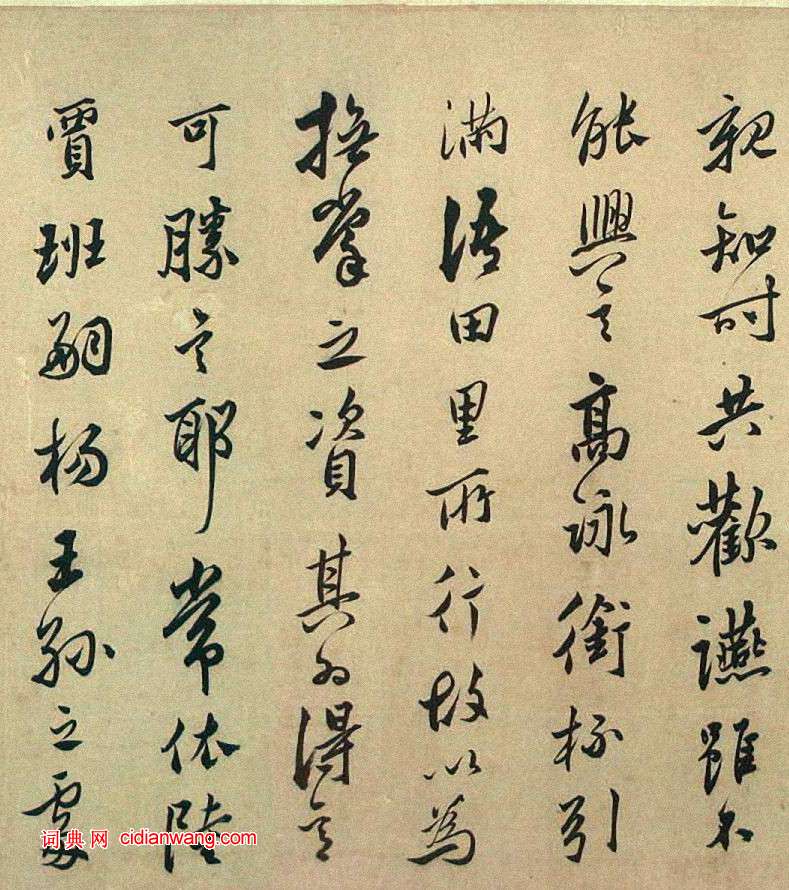 親知時共歡讌雖不
能興言高詠銜杯引
滿語田里所行故以為
撫掌之資其為得意
可勝言耶常依陸
賈班嗣楊王孫之處
词典网 cidianwang.com